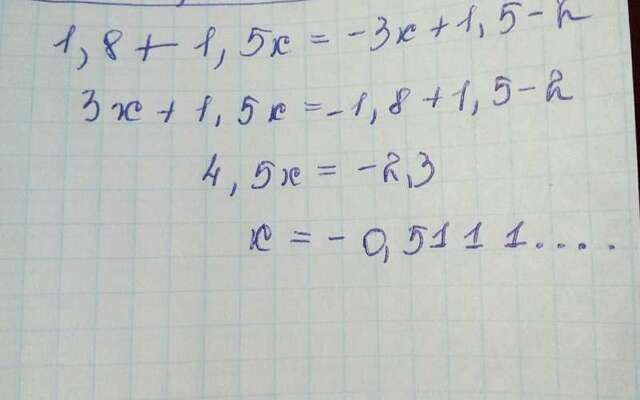 1,8+1,5x=-3x+1,5-2
3x+1,5x=-1,8+1,5-2
4,5x=-2,3
x=-0,5111....